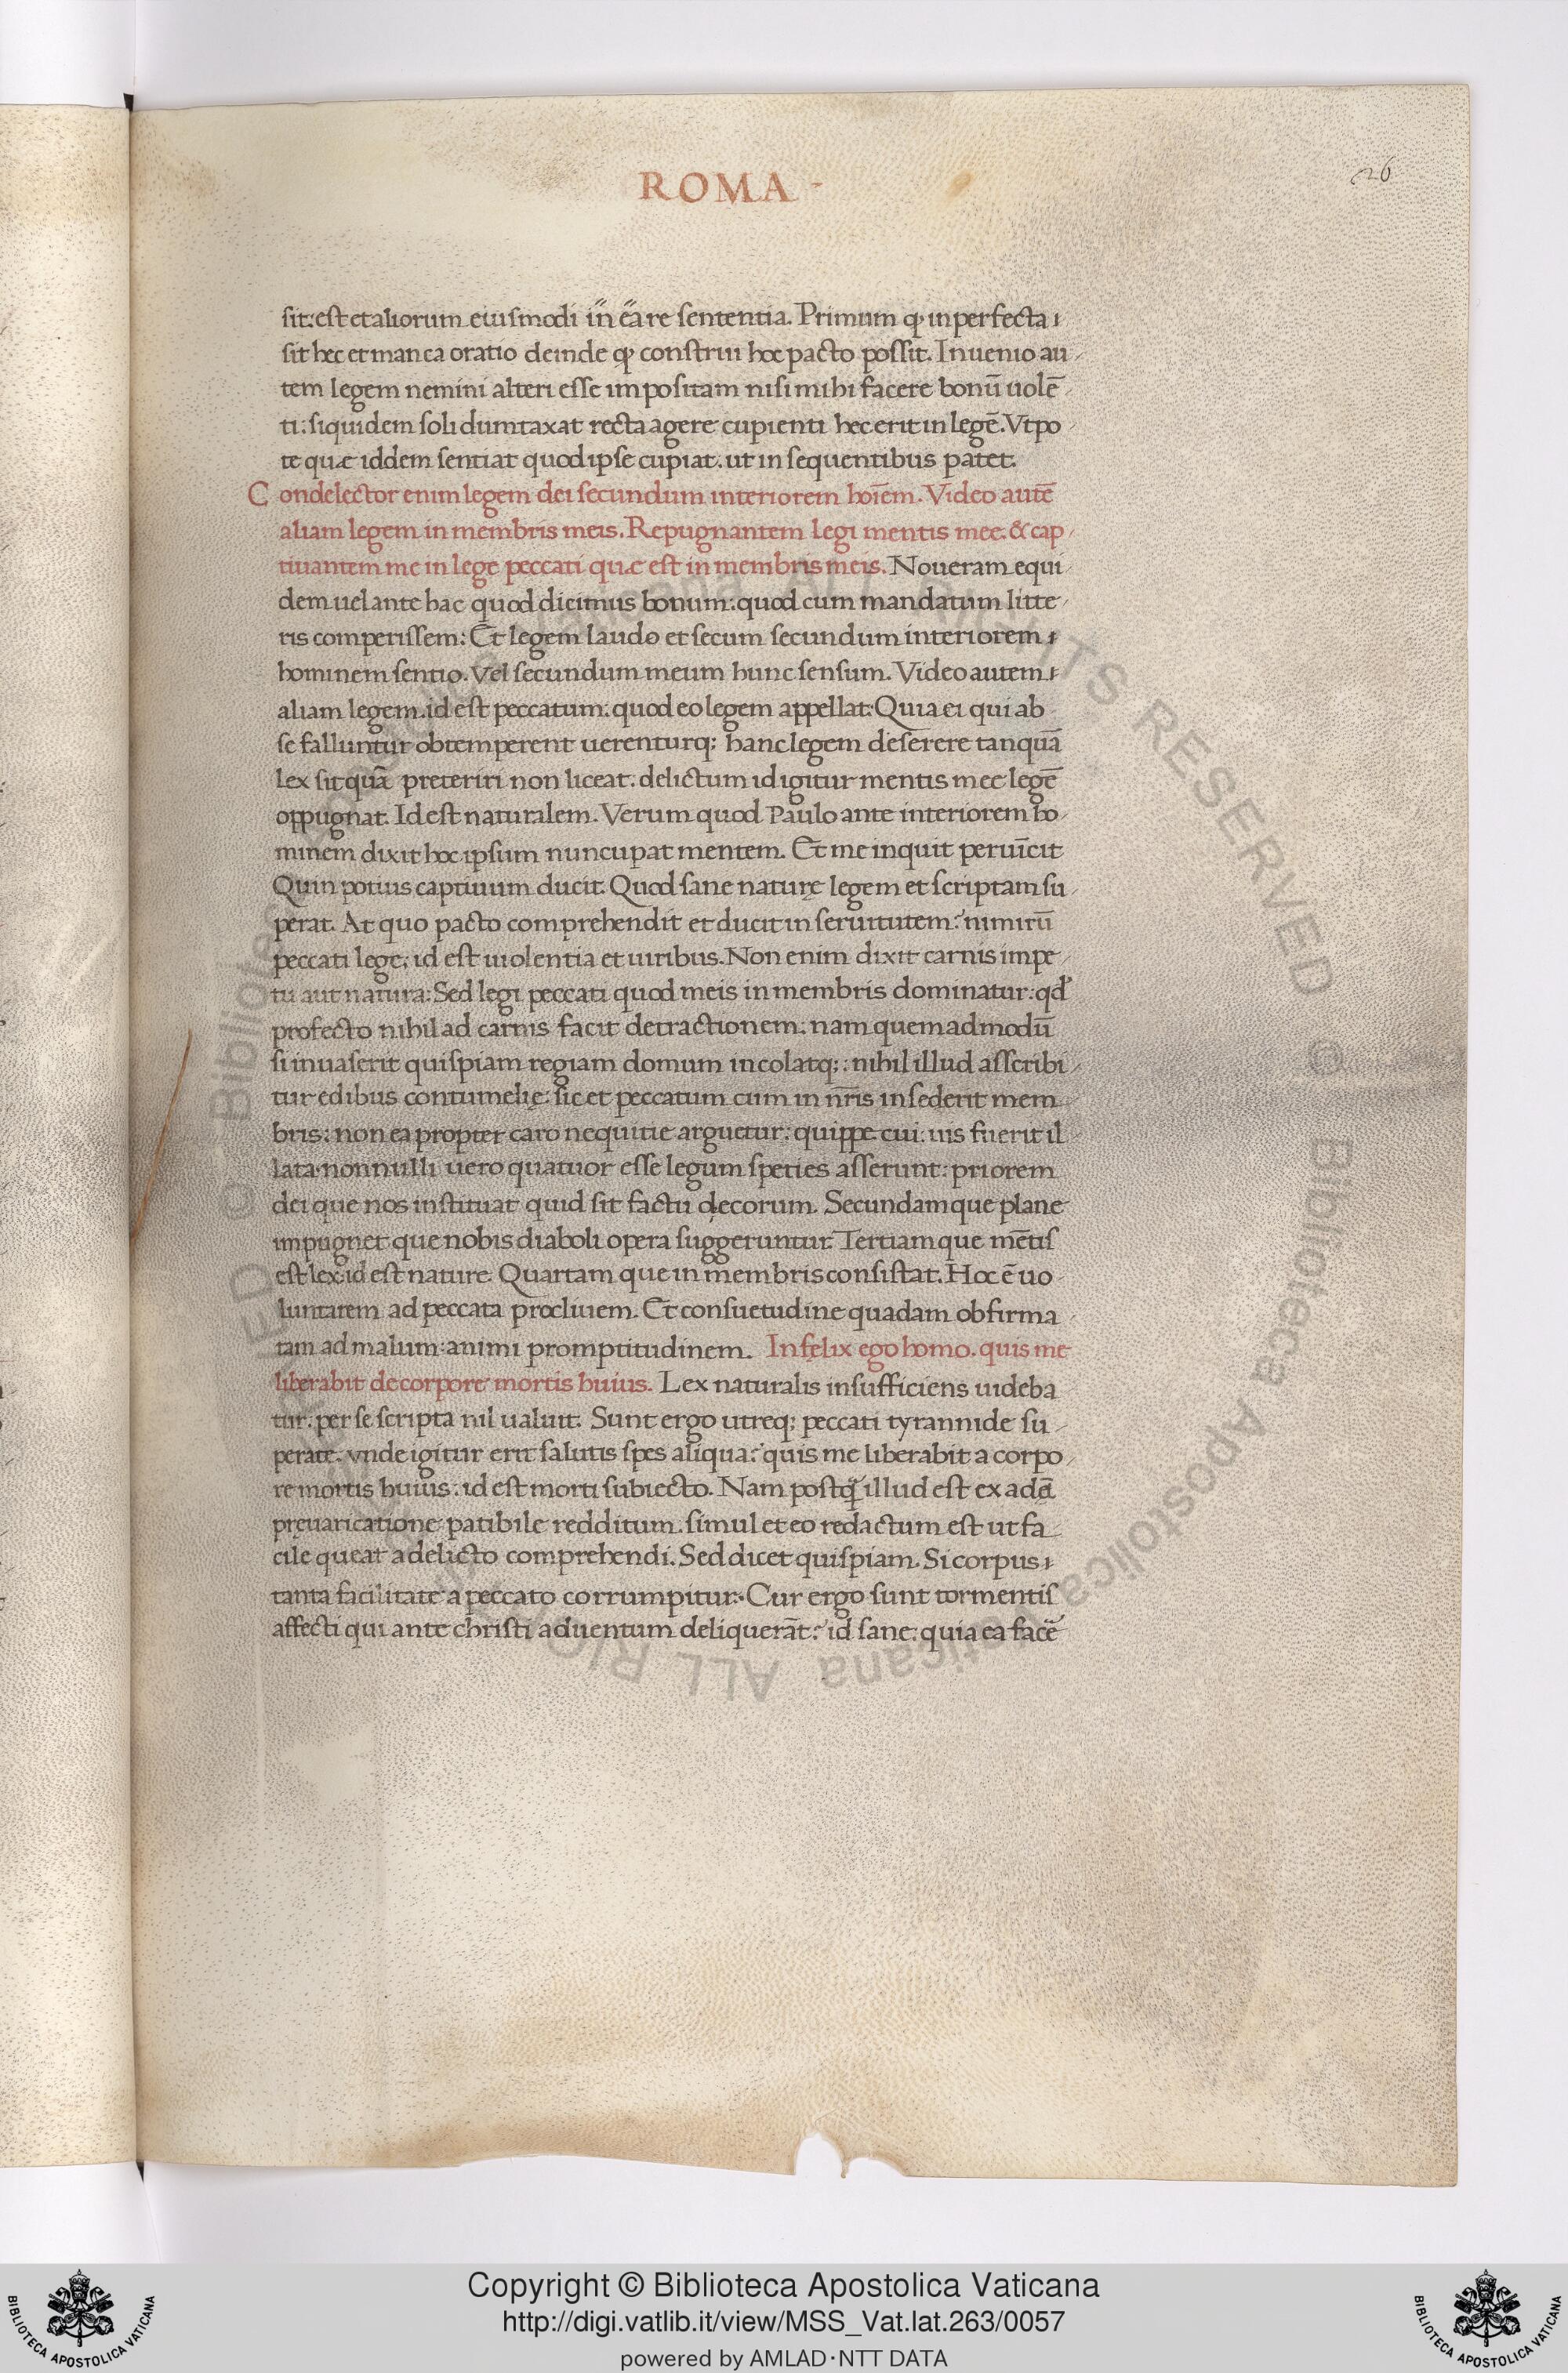 ROMA -
26
sit: est et aliorum eiusmodi in̋ ea̋ re sententia. Primum ꝙ inperfecta
sit hec et manca oratio deinde ꝙ construi hoc pacto possit. Inuenio au-
tem legem nemini alteri esse impositam nisi mihi facere bonū uolē
ti: siquidem soli dumtaxat recta agere cupienti hec erit in legē. Vtpo-
te quæ iddem sentiat quod ipse cupiat. ut in sequentibus patet.
Condelector enim legem dei secundum interiorem hoīem. Video autē
aliam legem in membris meis. Repugnantem legi mentis mee. & cap-
tiuantem me in lege peccati quæ est in membris meis. Noueram equi-
dem uel ante hac quod dicimus bonum: quod cum mandatum litte-
ris comperissem: Et legem laudo et secum secundum interiorem
hominem sentio. Vel secundum meum hunc sensum. Video autem
aliam legem. id est peccatum: quod eo legem appellat: Quia ei qui ab
se falluntur obtemperent uerenturq; hanc legem deserere tanquā
lex sit quā preteriri non liceat. delictum id igitur mentis mee legē
oppugnat. Id est naturalem. Verum quod Paulo ante interiorem ho-
minem dixit hoc ipsum nuncupat mentem. Et me inquit peruīcit
Quin potius captiuum ducit. Quod sane naturę legem et scriptam su-
perat. At quo pacto comprehendit et ducit in seruitutem? nimirū
peccati lege; id est uiolentia et uiribus. Non enim dixit carnis impe-
tu aut natura: Sed legi peccati quod meis in membris dominatur: qd̄
profecto nihil ad carnis facit detractionem: nam quemadmodū
si inuaserit quispiam regiam domum incolatq;: nihil illud asscribi-
tur edibus contumelię: sic et peccatum cum in nr̄is insederit mem-
bris: non ea propter caro nequitie arguetur: quippe cui uis fuerit il-
lata. nonnulli uero quatuor esse legum speties asserunt: priorem
dei que nos instituat quid sit factu decorum. Secundam que plane
impugnet que nobis diaboli opera suggeruntur. Tertiam que mētis
est lex: id est nature. Quartam que in membris consistat. Hoc ē uo-
luntatem ad peccata procliuem. Et consuetudine quadam obfirma
tam ad malum: animi promptitudinem. Infęlix ego homo. quis me
liberabit de corpore mortis huius. Lex naturalis insufficiens uideba
tur: per se scripta nil ualuit. Sunt ergo utreq; peccati tyrannide su-
perate. vnde igitur erit salutis spes aliqua? quis me liberabit a corpo-
re mortis huius: id est morti subiecto. Nam postq̄ illud est ex adā
pręuaricatione patibile redditum. simul et eo redactum est ut fa-
cile queat a delicto comprehendi. Sed dicet quispiam. Si corpus
tanta facilitate a peccato corrumpitur: Cur ergo sunt tormentis
affecti qui ante christi aduentum deliquerāt? id sane: quia ea facē
Copyright © Biblioteca Apostolica Vaticana
http://digi.vatlib.it/view/MSS_Vat.lat.263/0057
powered by AMLAD·NTT DATA